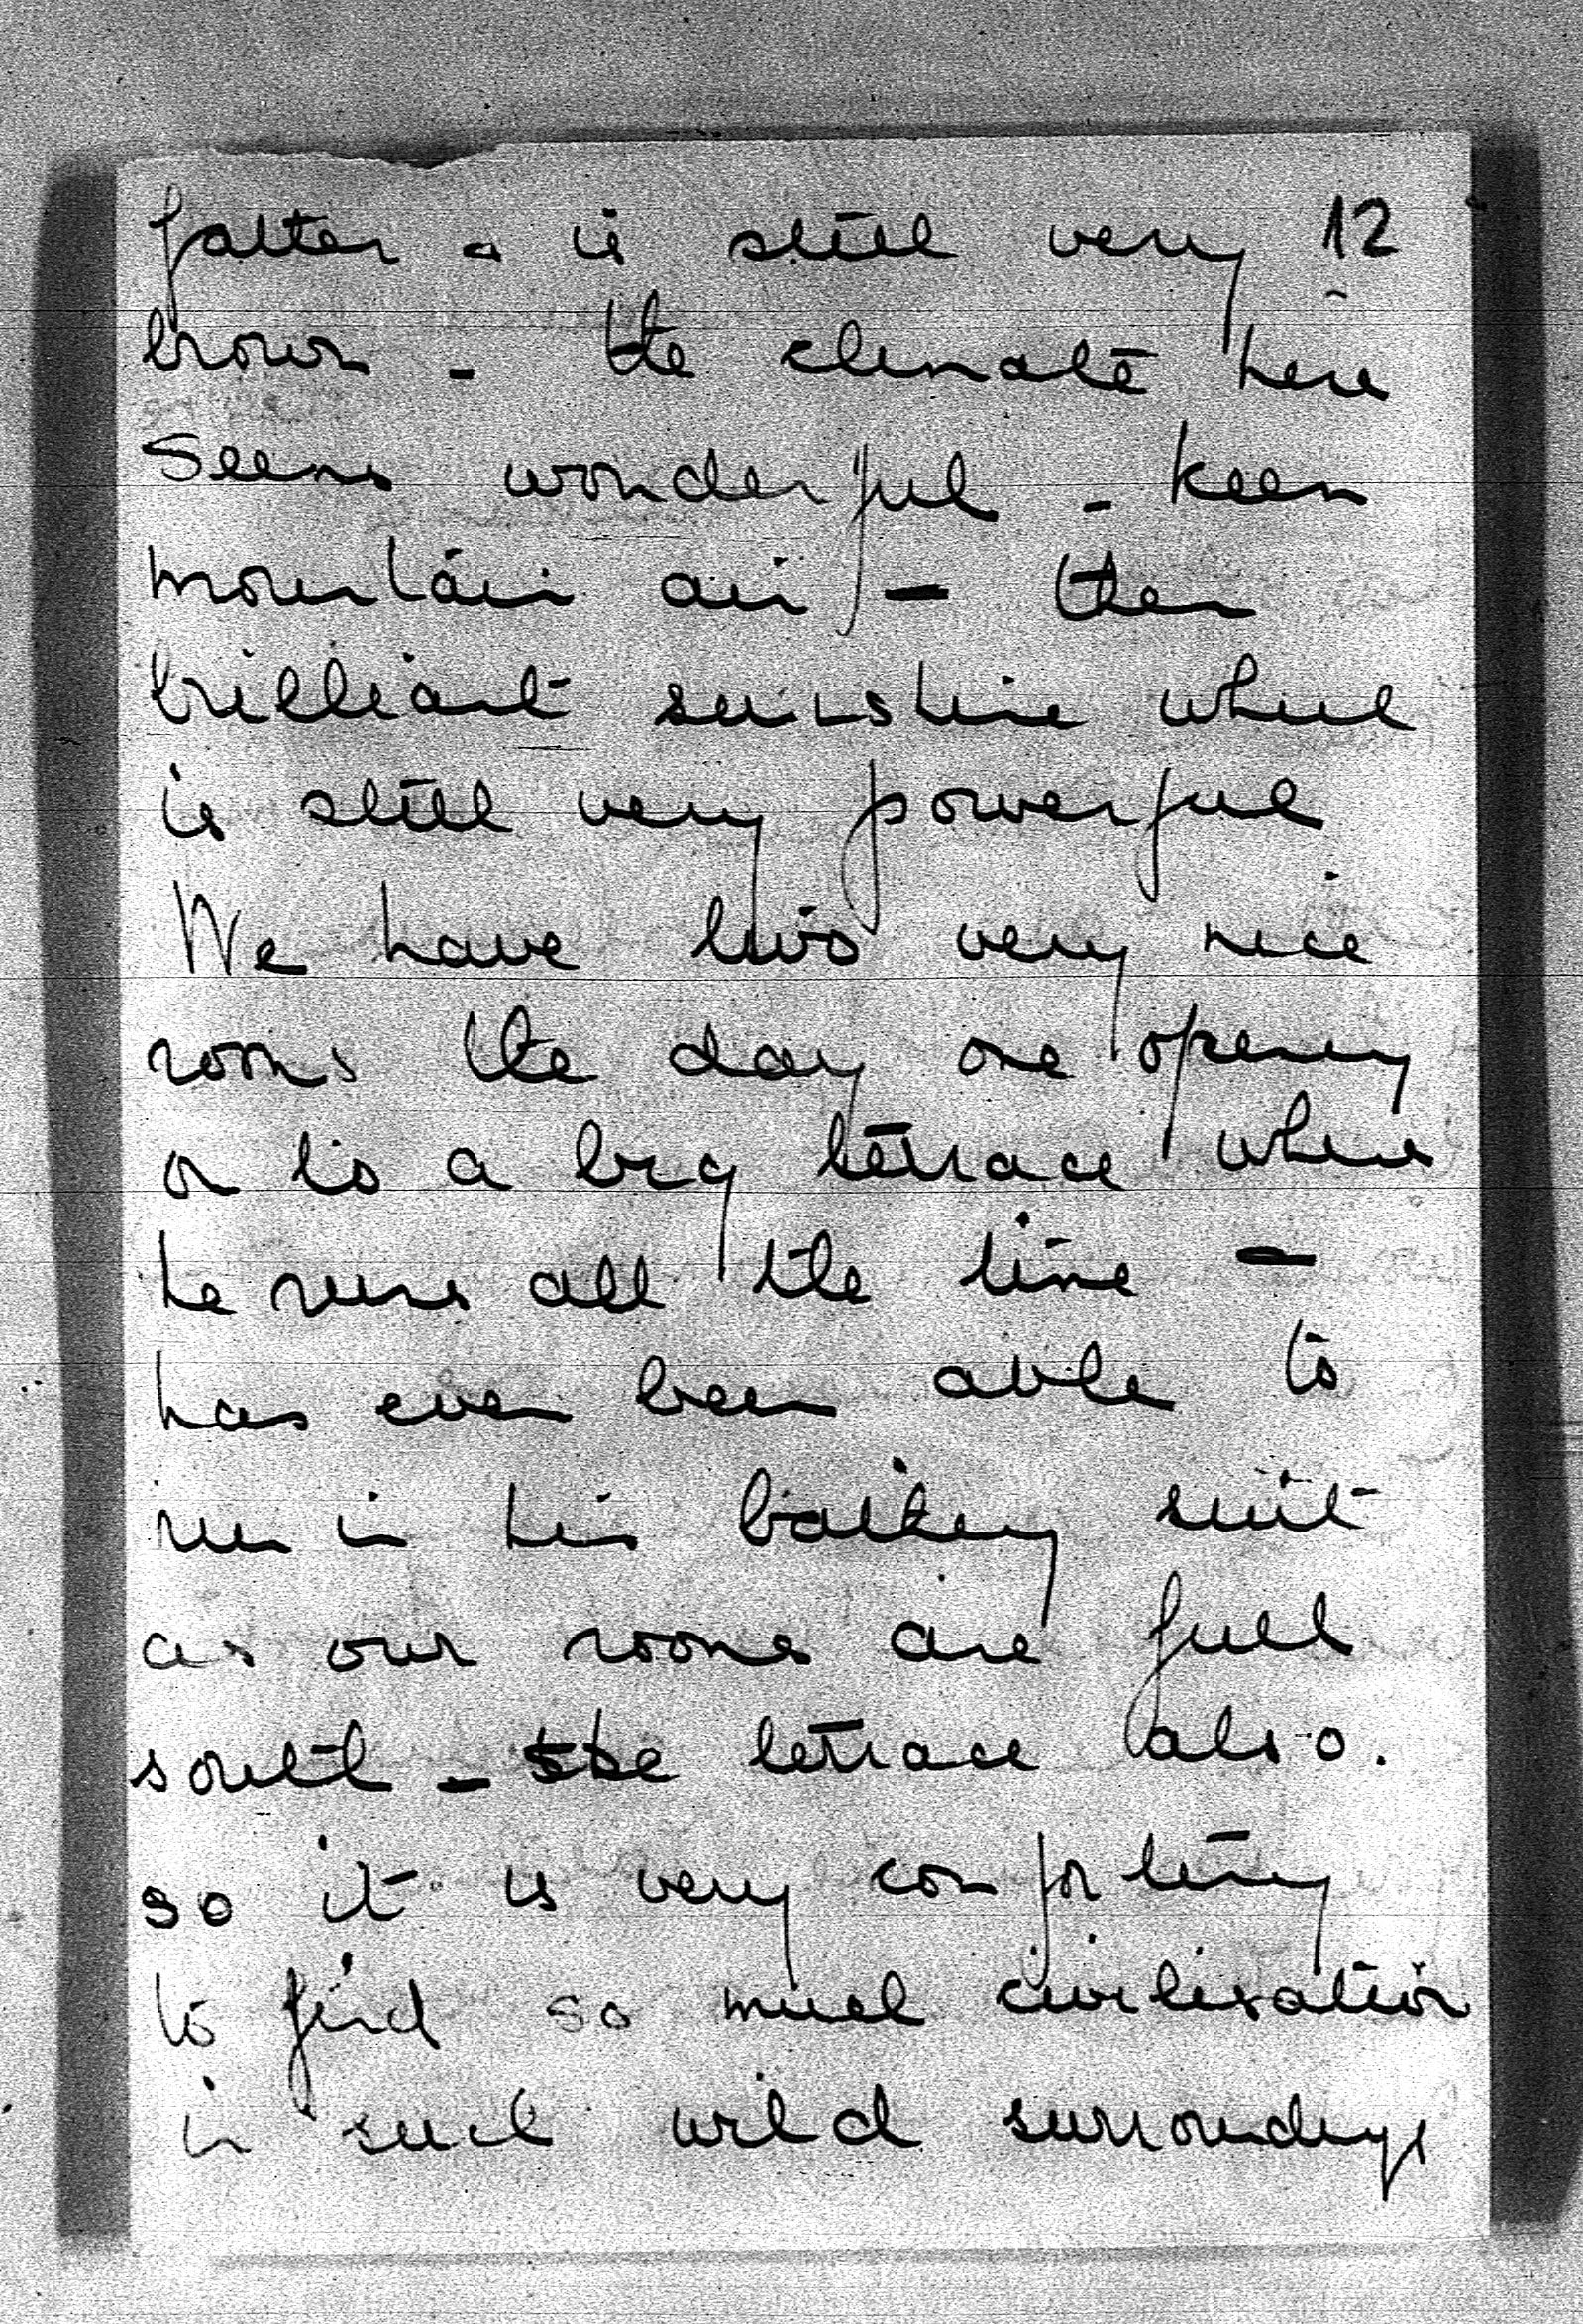 fatter & is still very 12
brown - the climate here
seems wonderful - keen
mountain air - then
brilliant sunshine which
is still very powerful
We have two very nice
rooms the day one opening
on to a big terrace where
he runs all the time -
has even been able to
run in his bathing suit
as our rooms are full
south - the terrace also.
so it is very comforting
to find so much civilisation
in such wild surroundings